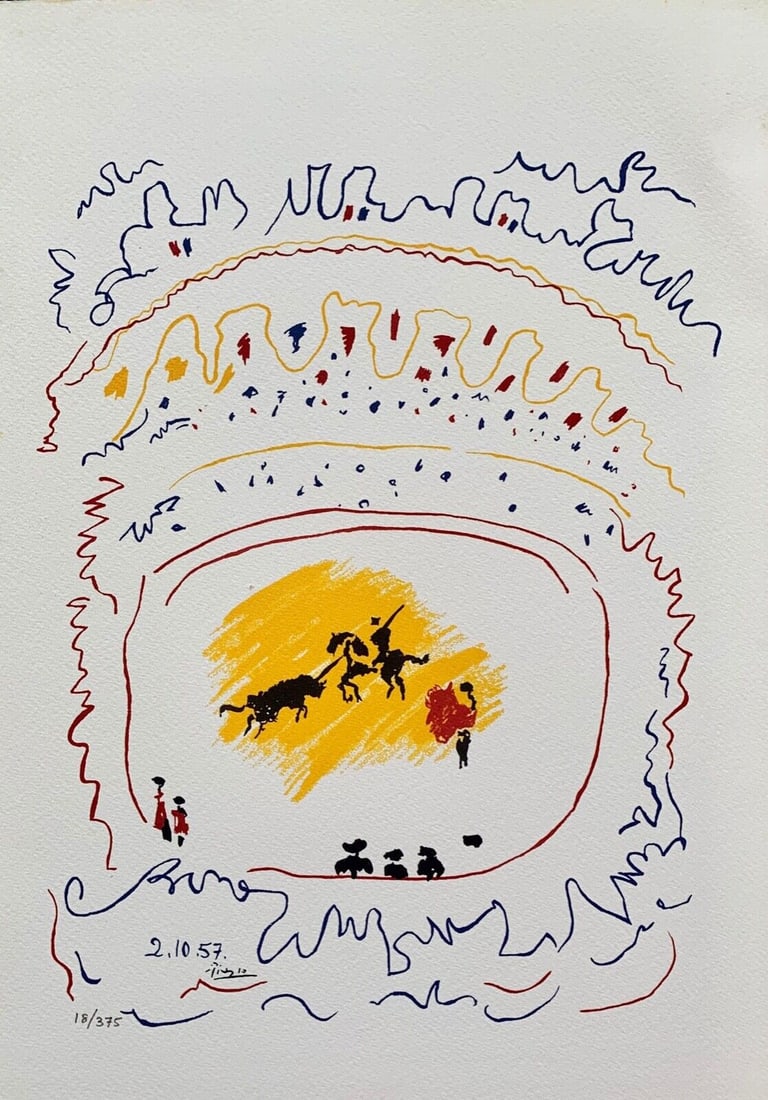 2.10.57.
Picasso
18/375